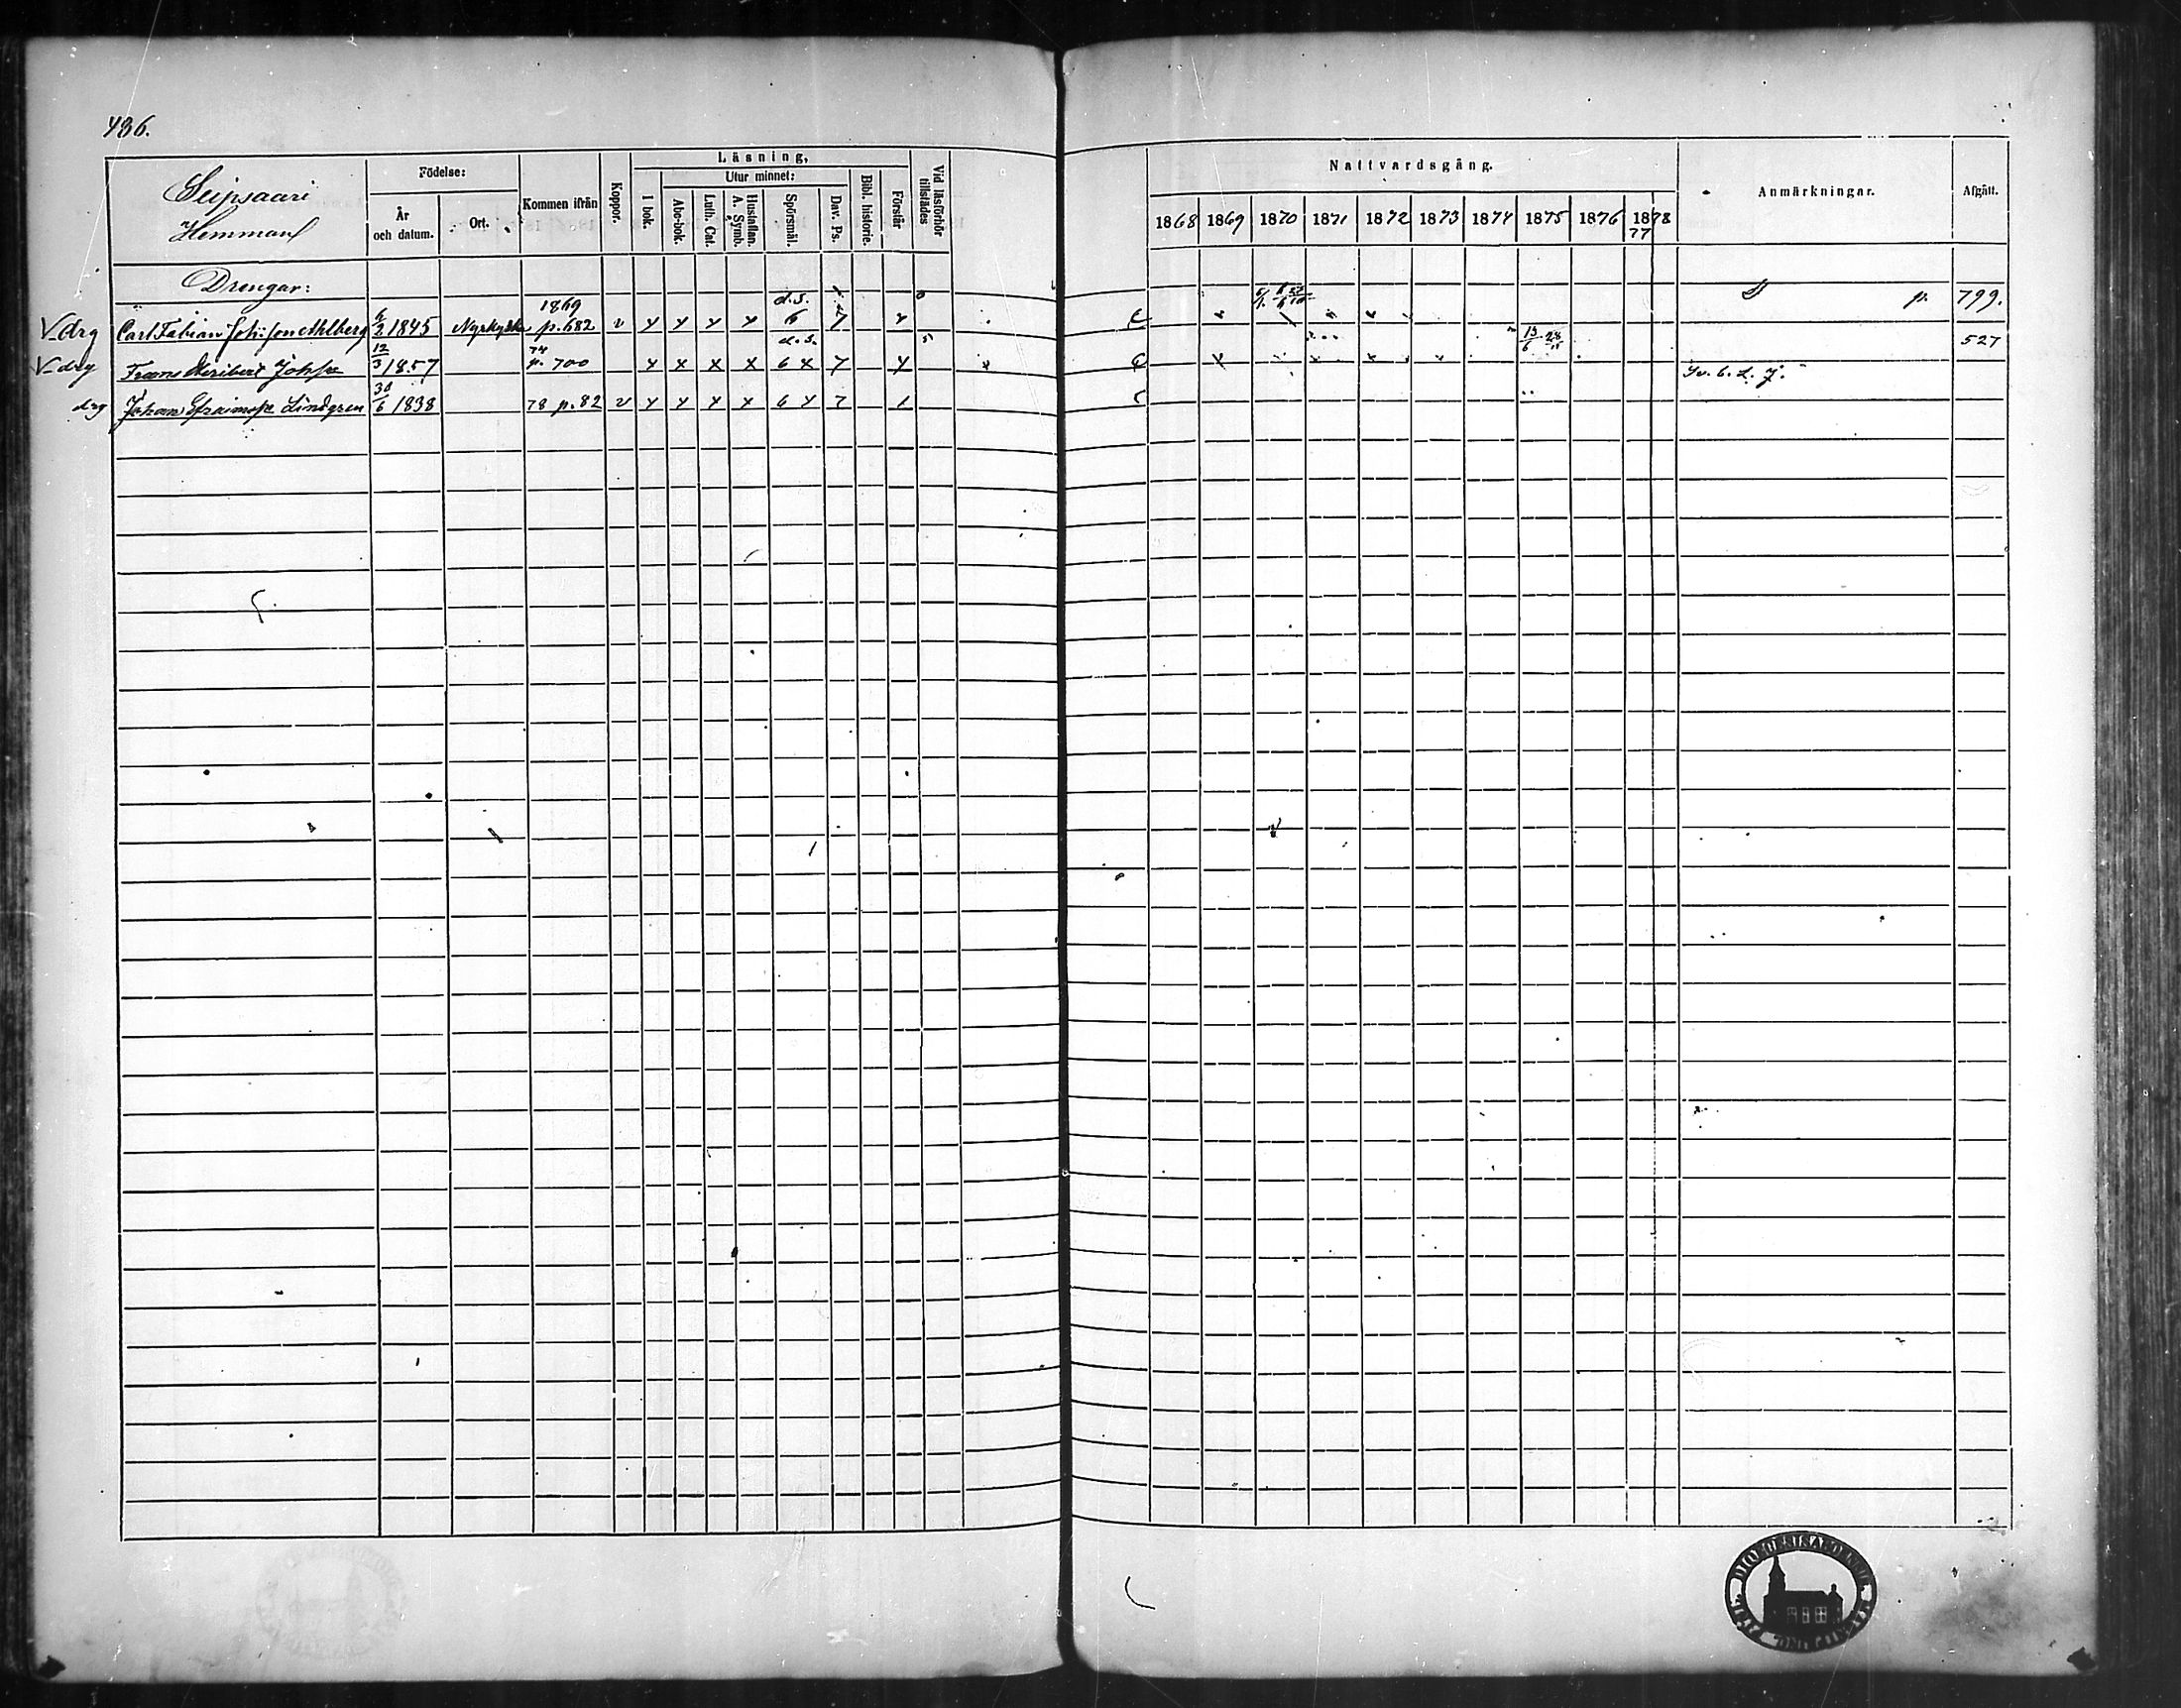 436.
Seipsaari
Hemman
Födelse:
År
och datum.
Ort.
Kommen ifrån
Koppor.
Läsning,
I bok.
Utur minnet:
Abc-bok.
Luth. Cat.
Hustaflan.
A. Symb.
Spörsmål.
Dav. Ps.
Bibl. historie.
Förstår
Vid läsförhör
tillstädes
Nattvardsgång.
1868 1869 1870 1871 1872 1873 1874 1875 1876 1878
77
Anmärkningar.
Afgått.
Drengar:
V. drg Carl Fabian Ahlberg 6/2 1845 Nyrkyskö 1869 p. 682 v x x x x d.s. 6 7 x p. 799.
V. drg Frans Heribert Johsse 12/3 1857 74 p. 700 x x x x d.s. 6 x 7 x 13/6 527
drg Johan Efraimsse Lindgren 30/6 1838 78 p. 82 v x x x x 6 x 7 1